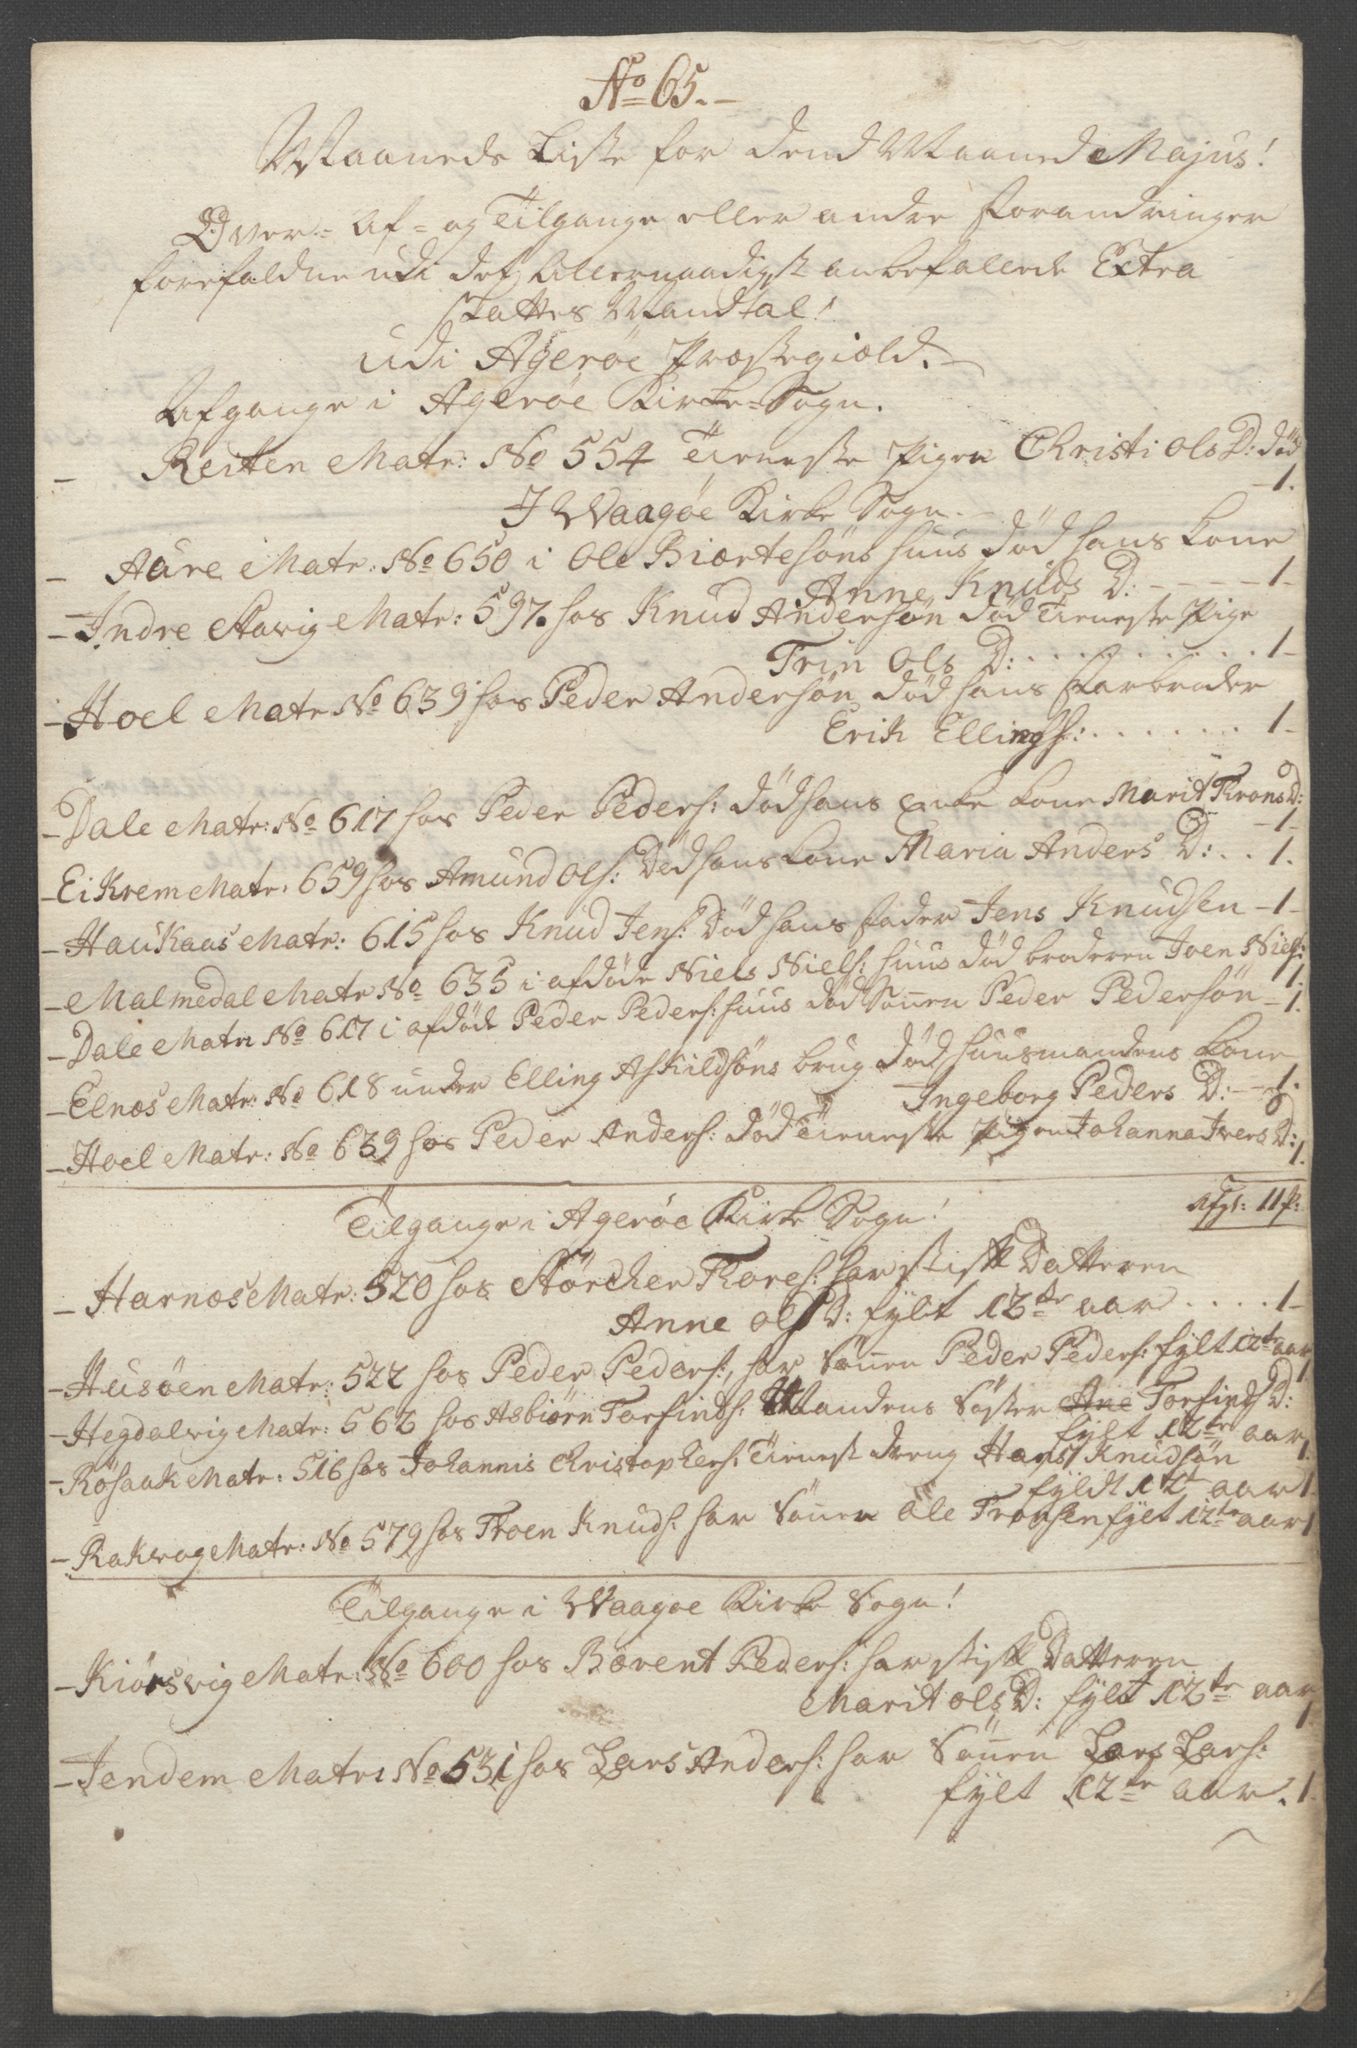 No 65.
Maaneds Liste for dend Maaned Majus!
Over- Af- og Tilgange eller andre forandringer
forefaldne udi det Allernaadigst anbefallede Extra
Skattes Mandtal!
udi Agerøe Præstegiæld.
Afgange i Agerøe Kirke-Sogn.
- Reiten Matr: No 554 Tieneste Pigen Christi Ols D: död
-1.
I Waagøe Kirke Sogn.
- Aure Matr: No 650 i Ole Biærtesöns huus död hans kone
Anne Knuds D: - - - - 1-
- Indre Havig Matr: 597. hos Knud Andersön död tieneste Pige
Trin Ols D: . . . . . . . . . . 1-
- Hoel Matr No 639 hos Peder Andersön död hans farbroder
Erik Ellings: . . . . . . . 1-
- Dale Matr: No 617 hos Peder Peders: död hans Enke kone Marit Trons D:
-1-
- Eikrem Matr: 659 hos Amund Ols: Död hans kone Maria Anders D: . . 1.
- Haukaas Matr: 615 hos Knud Jens: Död hans fader Jens Knudsen -1-
- Malmedal Matr No 635 i afdöde Niels Niels: huus död broderen Joen Niels:
1.
- Dale Matr No 617 i afdöde Peder Peders: huus död Sönnen Peder Pedersön -1.
- Elnæs Matr: No 618 under Elling Askildsöns brug död huusmandens kone
Ingeborg Peders D: - -1.
- Hoel Matr: No 639 hos Peder Anders: död Tieneste Pigen Johanna Ivers D:
1.
Afg: 11 p:
Tilgange i Agerøe Kirke Sogn!
- Harnæs Matr: 520 hos Störcher Tores: har stifft Datteren
Anne Ols D: fylt 12te aar . . . . 1-
- Husöen Matr: 522 hos Peder Peders:, har Sönnen Peder Peders: fylt 12te aar
1
- Hegdalvig Matr: 562 hos Asbiörn Torfinds: Mandens Söster Ane Torfinds D:
fylt 12te aar 1.
- Rösaak Matr: 516 hos Johannis Christophers: Tieneste dreng Hans Knudsön
fyldt 12t aar 1
- Rakvog Matr: No 579 hos Troen Knuds: har Sönnen Ole Tronsen fylt 12te aar 1
Tilgange i Waagøe Kirke Sogn!
- Kiörsvig Matr: No 600 hos Bærent Peders: har stifft Datteren
Marit Ols D: fylt 12te aar
1
- Jendem Matr: No 531 hos Lars Anders: har Sönnen Lars Lars:
fylt 12te aar. 1.